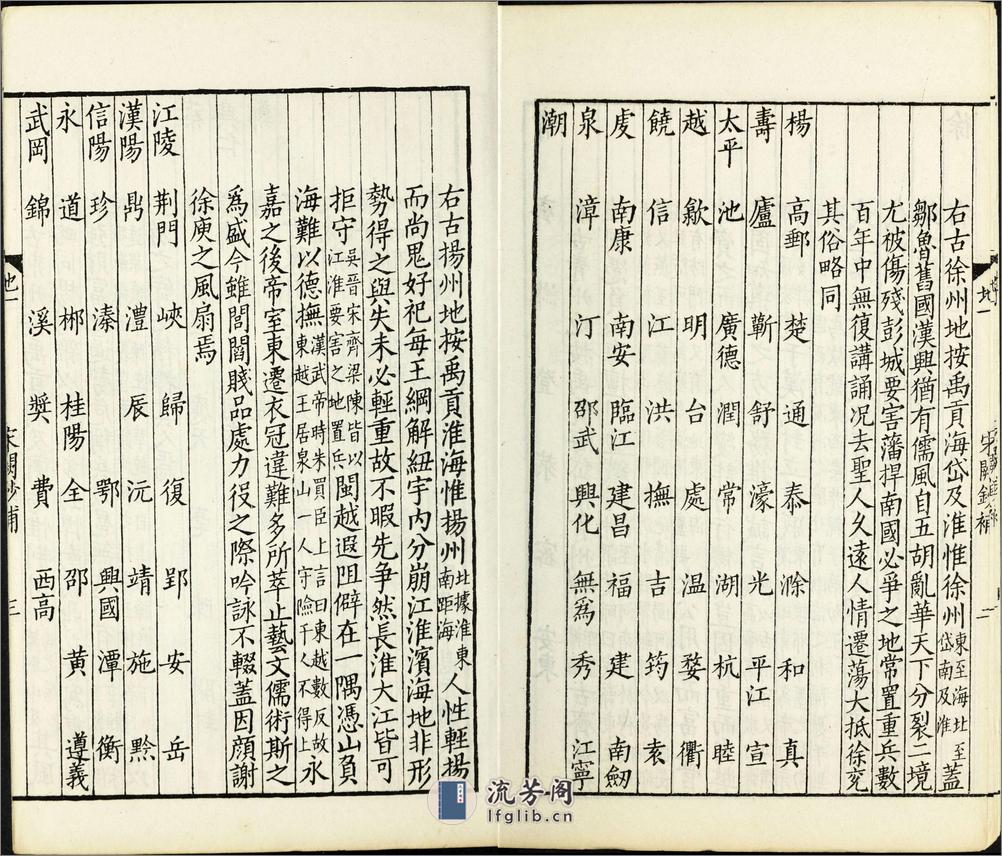 右古徐州地按禹貢海岱及淮惟徐州東至海北至岱南及淮蓋
鄒魯舊國漢興猶有儒風自五胡亂華天下分裂二境
尤被傷殘彭城要害藩捍南國必爭之地常置重兵數
百年中無復講誦况去聖人久遠人情遷蕩大抵徐兗
其俗略同
楊 高郵 楚 通 泰 滁 和 真
壽 廬 蘄 舒 濠 光 平江 宣
太平 池 廣德 潤 常 湖 杭 睦
越 歙 明 台 處 温 婺 衢
饒 信 江 洪 撫 吉 筠 袁
虔 南康 南安 臨江 建昌 福 建 南劒
泉 漳 汀 邵武 興化 無為 秀 江寧
潮
右古揚州地按禹貢淮海惟揚州北據淮南距海東人性輕揚
而尚鬼好祀每王綱解紐宇内分崩江淮濱海地非形
勢得之與失未必輕重故不暇先争然長淮大江皆可
拒守吳晉宋齊梁陳皆以江淮要害之地置兵閩越遐阻僻在一隅憑山負
海難以德撫漢武帝時朱買臣上言曰東越數反故東越王居泉山一人守險千人不得上永
嘉之後帝室東遷衣冠違難多所萃止藝文儒術斯之
爲盛今雖閭閻賤品處力役之際吟詠不輟蓋因顔謝
徐庾之風扇焉
江陵 荆門 峽 歸 復 郢 安 岳
漢陽 鼎 澧 辰 沅 靖 施 黔
信陽 珍 溱 鄂 興國 潭 衡
永 道 郴 桂陽 全 邵 黄 遵義
武岡 錦 溪 奬 費 西高
地一
三
流芳阁
lfglib.cn